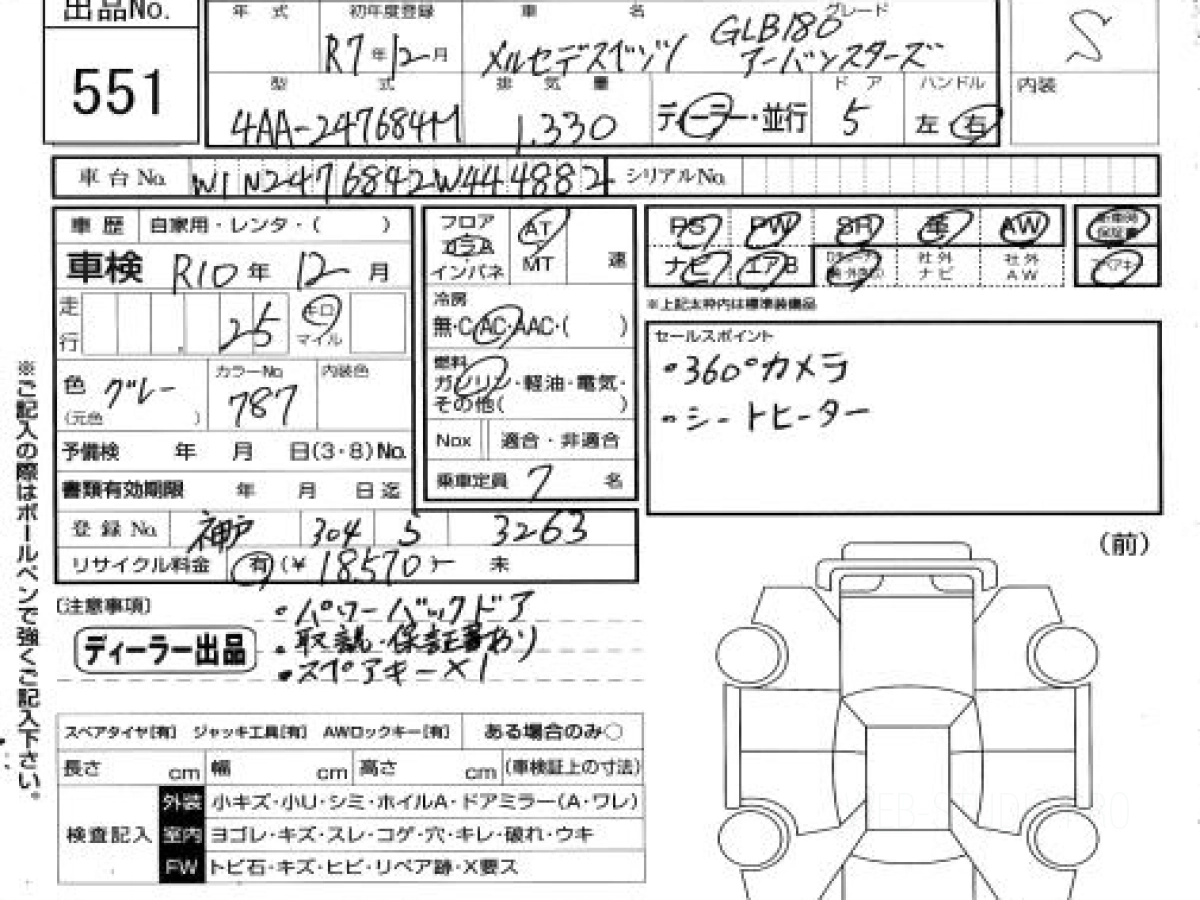 出品No. 551
年式
初年度登録 R7年12月
車名 メルセデスベンツ GLB180 アーバンスターズ
グレード
S
型式 4AA-247684M
排気量 1,330
ディーラー・並行
ドア 5
ハンドル 左 右
内装
車台No. W1N2476842W444882
シリアルNo.
車歴 自家用・レンタ・( )
車検 R10年12月
走行 25 キロ マイル
色 グレー (元色 )
カラーNo 787
内装色
予備検 年 月 日(3・8)No.
書類有効期限 年 月 日迄
登録No. 神戸 304 3263
リサイクル料金 有(¥18570)- 未
フロア コラム インパネ
AT MT 速
冷房
無・C・AC・AAC・( )
燃料
ガソリン・軽油・電気・
その他( )
Nox 適合・非適合
乗車定員 7名
PS PW SR 革 AW 保証書
ナビ エアB 社外ナビ 社外AW スペアキー
※上記太枠内は標準装備品
セールスポイント
・360°カメラ
・シートヒーター
※ご記入の際はボールペンで強くご記入下さい。
(前)
〔注意事項〕
ディーラー出品
・パワーバックドア
・取説・保証書あり
・スペアキー×1
スペアタイヤ[有] ジャッキ工具[有] AWロックキー[有] ある場合のみ○
長さ cm 幅 cm 高さ cm (車検証上の寸法)
検査記入
外装 小キズ・小U・シミ・ホイルA・ドアミラー(A・ワレ)
室内 ヨゴレ・キズ・スレ・コゲ・穴・キレ・破れ・ウキ
FW トビ石・キズ・ヒビ・リペア跡・X要ス